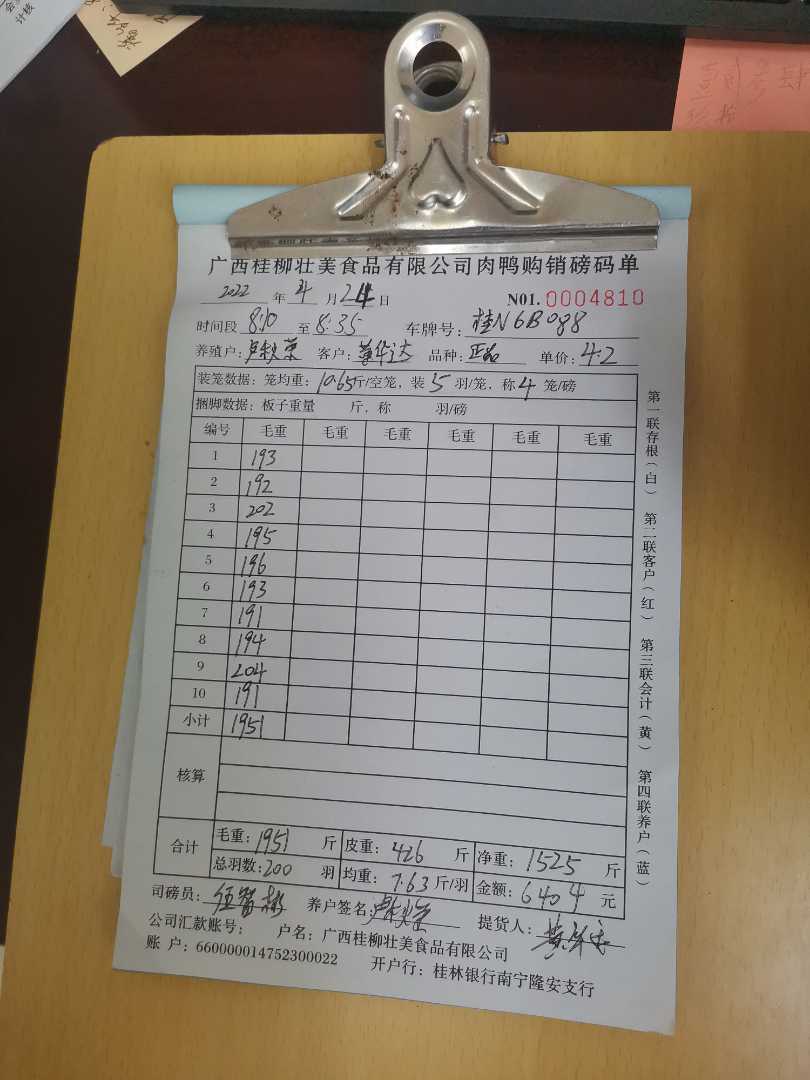 广西桂柳壮美食品有限公司肉鸭购销磅码单
2022 年 4 月 24 日 N01. 0004810
时间段 8:10 至 8:35 车牌号: 桂N6B088
养殖户: 卢秋荣 客户: 黄华达 品种: 正品 单价: 4.2
装笼数据: 笼均重: 10.65斤/空笼, 装 5 羽/笼, 称 4 笼/磅
捆脚数据: 板子重量 斤, 称 羽/磅
编号 毛重 毛重 毛重 毛重 毛重 毛重
1 193
2 192
3 202
4 195
5 196
6 193
7 191
8 194
9 204
10 191
小计 1951
核算
合计 毛重: 1951 斤 皮重: 426 斤 净重: 1525 斤
总羽数: 200 羽 均重: 7.63 斤/羽 金额: 6404 元
司磅员: 养户签名: 卢秋荣 提货人:
公司汇款账号: 户名: 广西桂柳壮美食品有限公司
账 户: 660000014752300022 开户行: 桂林银行南宁隆安支行
第一联存根(白) 第二联客户(红) 第三联会计(黄) 第四联养户(蓝)